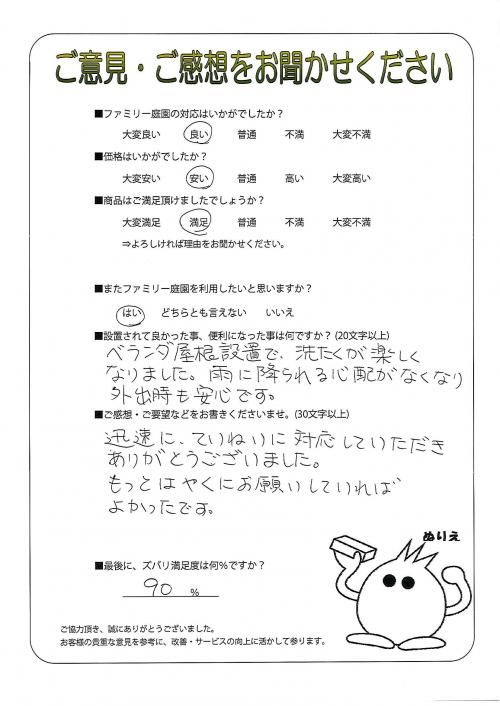 ご意見・ご感想をお聞かせください
■ファミリー庭園の対応はいかがでしたか？
大変良い 良い 普通 不満 大変不満
■価格はいかがでしたか？
大変安い 安い 普通 高い 大変高い
■商品はご満足頂けましたでしょうか？
大変満足 満足 普通 不満 大変不満
⇒よろしければ理由をお聞かせください。
■またファミリー庭園を利用したいと思いますか？
はい どちらとも言えない いいえ
■設置されて良かった事、便利になった事は何ですか？(20文字以上)
ベランダ屋根設置で、洗たくが楽しく
なりました。雨に降られる心配がなくなり
外出時も安心です。
■ご感想・ご要望などをお書きくださいませ。(30文字以上)
迅速に、ていねいに対応していただき
ありがとうございました。
もっとはやくにお願いしていれば
よかったです。
ぬりえ
■最後に、ズバリ満足度は何％ですか？
90 ％
ご協力頂き、誠にありがとうございました。
お客様の貴重な意見を参考に、改善・サービスの向上に活かして参ります。